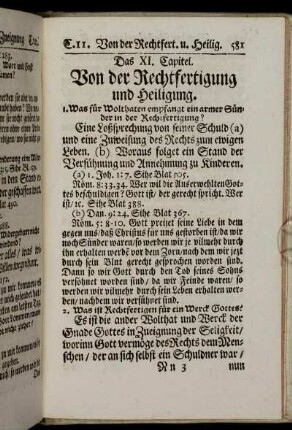 C. 11. Von der Rechtfert. u. Heilig. 581
Das XI. Capitel.
Von der Rechtfertigung
und Heiligung.
1. Was für Wolthaten empfangt ein armer Sün-
der in der Rechtfertigung?
Eine Loßsprechung von seiner Schuld (a)
und eine Zuweisung des Rechts zum ewigen
Leben. (b) Woraus folget ein Stand der
Versühnung und Annehmung zu Kinderen.
(a) 1. Joh. 1:7. Sihe Blat 505.
Röm. 8:33.34. Wer wil die Auserwehlten Got-
tes beschuldigen? Gott ist/ der gerecht spricht. Wer
ist/ ꝛc. Sihe Blat 388.
(b) Dan. 9:24. Sihe Blat 367.
Röm. 5:8-10. Gott preiset seine Liebe in dem
gegen uns/ daß Christus für uns gestorben ist/ da wir
noch Sünder waren/ so werden wir je vilmehr durch
ihn erhalten werde vor dem Zorn/ nach dem wir jezt
durch sein Blut gerecht gesprochen worden sind.
Dann so wir Gott durch den Tod seines Sohns
versöhnet worden sind/ da wir Feinde waren/ so
werden wir vilmehr durch sein Leben erhalten wer-
den/ nachdem wir versühnet sind.
2. Was ist Rechtfertigen für ein Werck Gottes?
Es ist die ander Wolthat und Werck der
Gnade Gottes in Zueignung der Seligkeit/
worinn Gott vermöge des Rechts dem Men-
schen/ der an sich selbst ein Schuldner war/
N n 3 nun